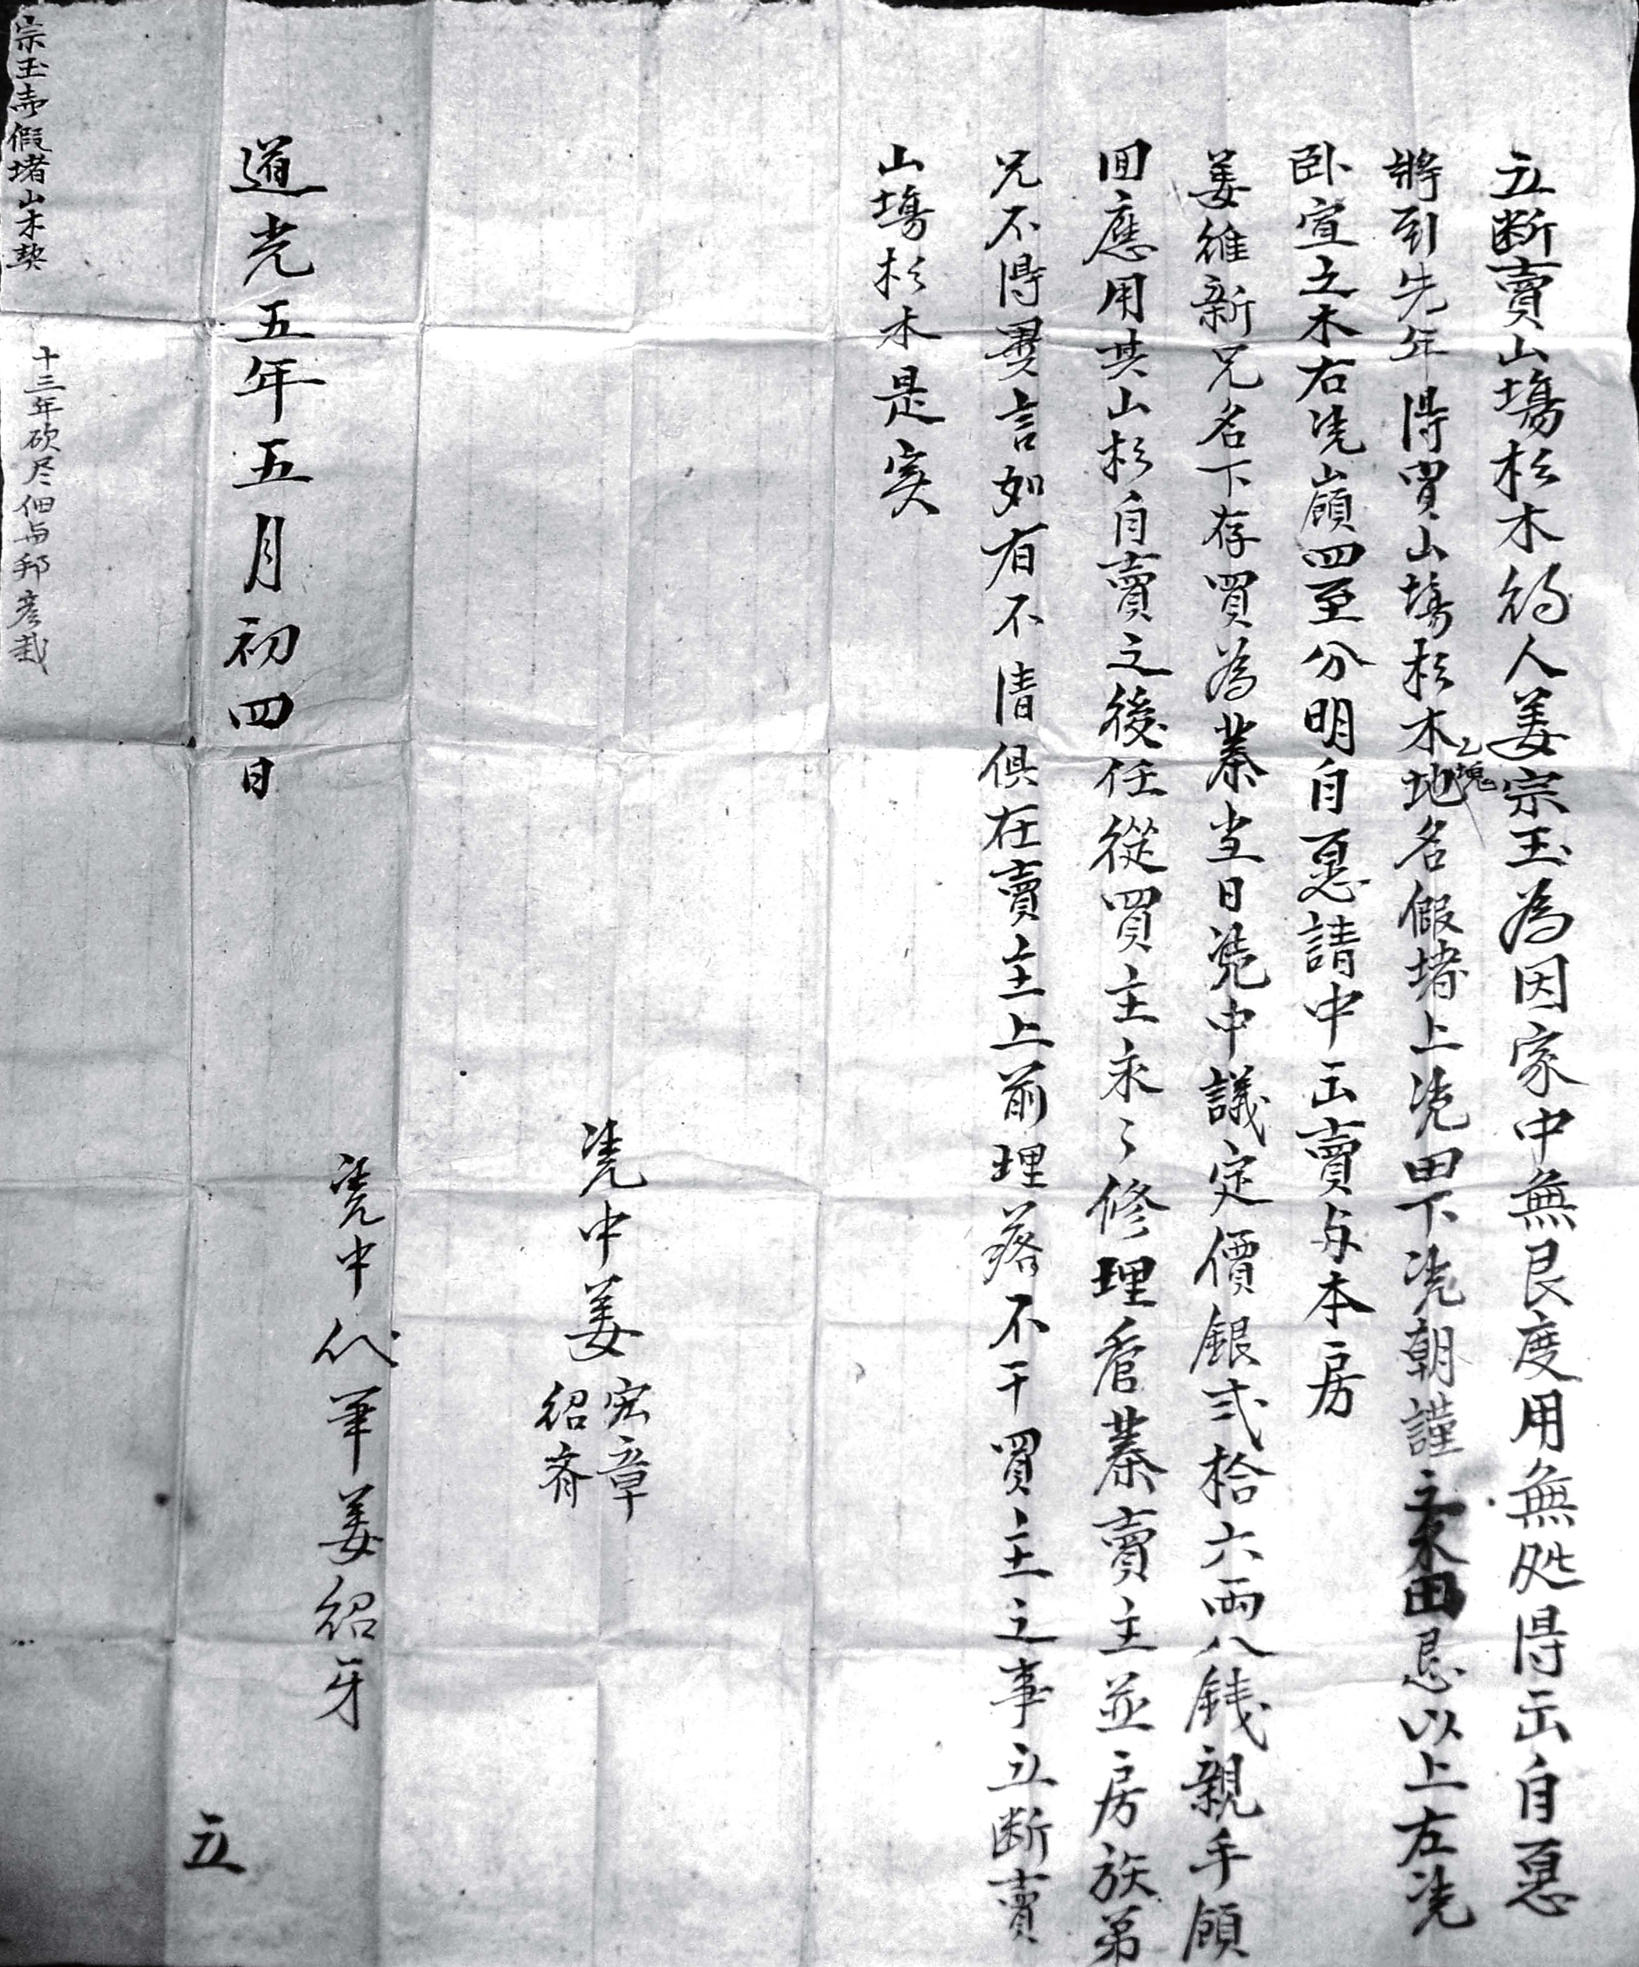 立断賣山塲杉木約人姜宗玉為因家中無艮度用無処得出自愿
將到先年得買山塲杉木乙塊地名假堵上凴田下凴朝謹之木田忌以上左凴
卧宣之木右凴嶺四至分明自愿請中出賣与本房
姜維新兄名下存買為業当日凴中議定價銀弍拾六両八銭親手領
回應用其山杉自賣之後任從買主永〻修理管業賣主並房族弟
兄不得異言如有不清俱在賣主上前理落不干買主之事立断賣
山塲杉木是实
凴中姜宏章
紹齊
凴中代筆姜紹牙
道光五年五月初四日
立
宗玉賣假堵山木契
十三年砍尽佃与邦彦栽